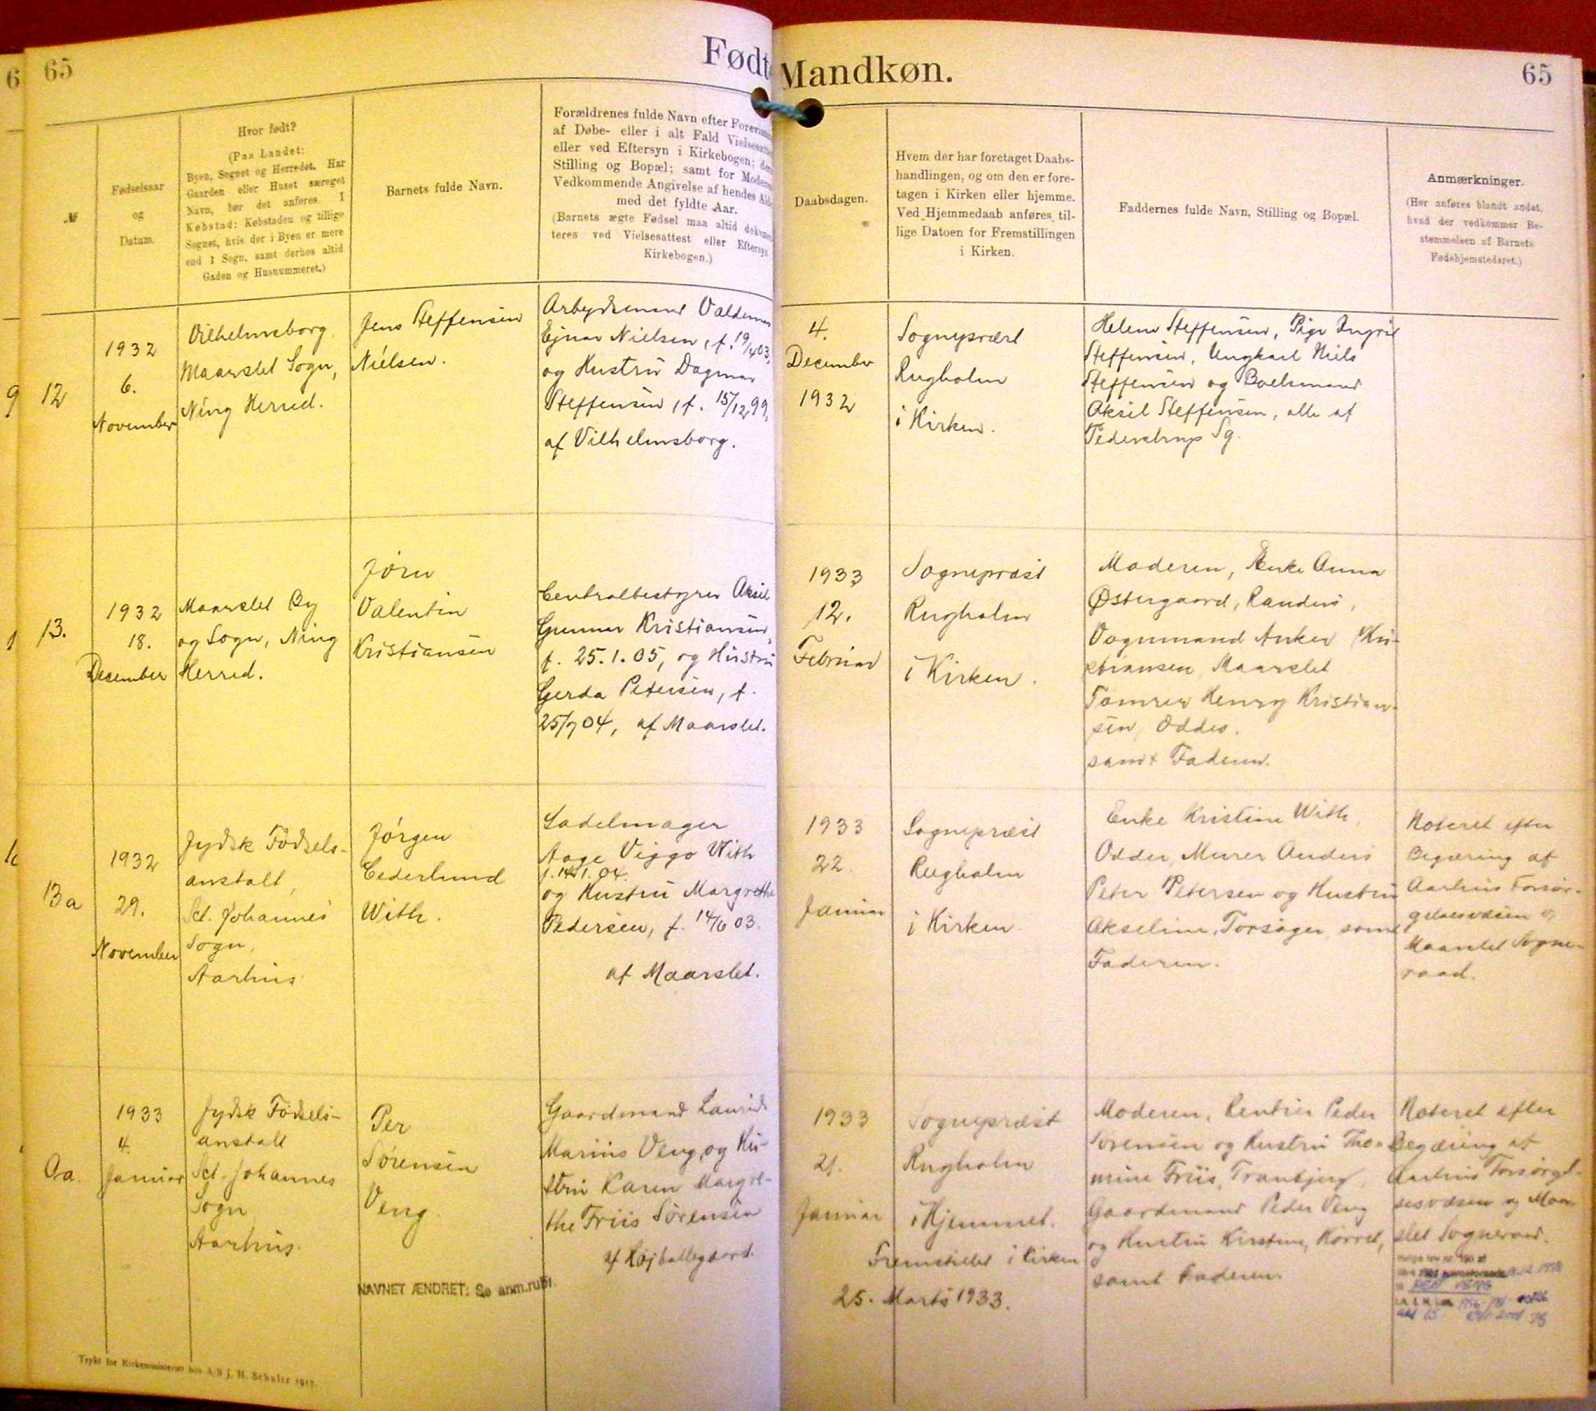 65
Født
Mandkøn.
65
№
Fødselsaar
og
Datum.
Hvor født?
(Paa Landet:
Byen, Sognet og Herredet. Har
Gaarden eller Huset særeget
Navn, bør det anføres. I
Købstad: Købstaden og tillige
Sognet, hvis der i Byen er mere
end 1 Sogn, samt derhos altid
Gaden og Husnummeret.)
Barnets fulde Navn.
Forældrenes fulde Navn efter
af Døbe- eller i alt Fald
eller ved Eftersyn i Kirkebogen;
Stilling og Bopæl; samt for
Vedkommende Angivelse af hendes
med det fyldte Aar.
(Barnets ægte Fødsel maa altid
teres ved Vielsesattest eller Eftersyn
Kirkebogen.)
Daabsdagen.
Hvem der har foretaget Daabs-
handlingen, og om den er fore-
tagen i Kirken eller hjemme.
Ved Hjemmedaab anføres til-
lige Datoen for Fremstillingen
i Kirken.
Faddernes fulde Navn, Stilling og Bopæl.
Anmærkninger.
(Her anføres blandt andet,
hvad der vedkommer Be-
stemmelsen af Barnets
Fødehjemstedsret.)
12
1932
6.
November
Vilhelmsborg
Maarslet Sogn,
Ning Herred.
Jens Steffensen
Nielsen.
Arbejdsmand Valdemar
Ejnar Nielsen, f. 19/4 03,
og Hustru Dagmar
Steffensen, f. 15/12 99,
af Vilhelmsborg.
4.
December
1932
Sognepræst
Rugholm
i Kirken.
Helene Steffensen, Pige Ingrid
Steffensen, Ungkarl Niels
Steffensen og Boelsmand
Aksel Steffensen, alle af
Pederstrup Sg.
13.
1932
18.
December
Maarslet By
og Sogn, Ning
Herred.
Jørn
Valentin
Kristiansen
Centralbestyrer Aksel
Gunnar Kristiansen,
f. 25.1.05, og Hustru
Gerda Petersen, f.
25/7 04, af Maarslet.
1933
12.
Februar
Sognepræst
Rugholm
i Kirken.
Moderen, Enke Anna
Østergaard, Randers,
Vognmand Anker Kri-
stiansen, Maarslet
Tømrer Henry Kristian-
sen, Odder.
samt Faderen.
13a
1932
29.
November
Jydsk Fødsels-
anstalt,
Sct. Johannes
Sogn,
Aarhus
Jørgen
Cederlund
With.
Sadelmager
Aage Viggo With
og Hustru Margrethe
Pedersen, f. 14/6 03.
af Maarslet.
1933
22.
Januar
Sognepræst
Rugholm
i Kirken
Enke Kristine With,
Odder, Murer Anders
Peter Petersen og Hustru
Akseline, Torsager samt
Faderen.
Noteret efter
Begæring af
Aarhus Forsør-
gelsesvæsen og
Maarslet Sogne-
raad.
0a.
1933
4.
Januar
Jydsk Fødsels-
anstalt
Sct. Johannes
Sogn
Aarhus.
Per
Sørensen
Veng.
Gaardmand Laurids
Marius Veng og Hu-
stru Karen Margre-
the Friis Sørensen
af Højballegaard.
NAVNET ÆNDRET: Se anm.rubr.
1933
21.
Januar
Sognepræst
Rugholm
i Hjemmet.
Fremstillet i Kirken
25. Marts 1933.
Moderen, Rentier Peder
Sørensen og Hustru Tho-
mine Friis, Tranbjerg,
Gaardmand Peder Veng
og Hustru Kirstine, Norret,
samt Faderen.
Noteret efter
Begæring af
Aarhus Forsørgel-
sesvæsen og Maar-
slet Sogneraad.
Trykt for Kirkeministeriet hos A/S J. H. Schultz 1917.